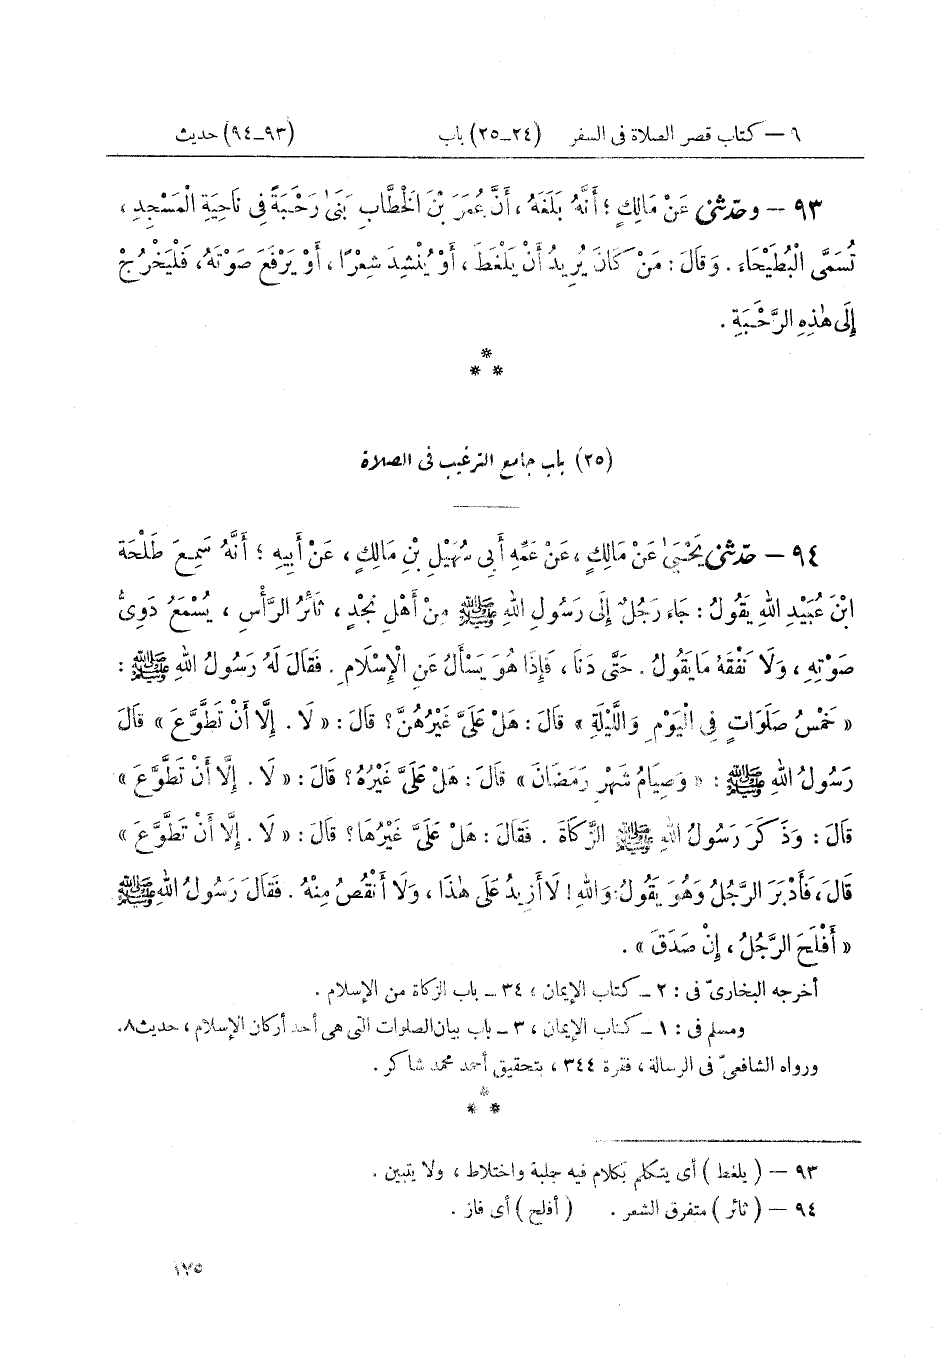 ٦ — كتاب قصر الصلاة فى السفر (٢٤_٢٥) باب (٩٣_٩٤) حديث
٩٣ — وحدّثنى عَنْ مَالِكٍ ؛ أَنَّهُ بَلَغَهُ ، أَنَّ عُمَرَ بْنَ الْخَطَّابِ بَنَىٰ رَحْبَةً فِى نَاحِيَةِ الْمَسْجِدِ ،
تُسَمَّى الْبُطَيْحَاءَ . وَقَالَ : مَنْ كَانَ يُرِيدُ أَنْ يَلْغَطَ ، أَوْ يُنْشِدَ شِعْرًا ، أَوْ يَرْفَعَ صَوْتَهُ ، فَلْيَخْرُجْ
إِلَى هٰذِهِ الرَّحْبَةِ .
*
* *
(٢٥) باب جامع الترغيب فى الصلاة
٩٤ — حدّثنى يَحْيَىٰ عَنْ مَالِكٍ ، عَنْ عَمِّهِ أَبِى سُهَيْلِ بْنِ مَالِكٍ ، عَنْ أَبِيهِ ؛ أَنَّهُ سَمِعَ طَلْحَةَ
ابْنَ عُبَيْدِ اللهِ يَقُولُ : جَاءَ رَجُلٌ إِلَى رَسُولِ اللهِ ﷺ مِنْ أَهْلِ نَجْدٍ ، ثَائِرُ الرَّأْسِ ، يُسْمَعُ دَوِىُّ
صَوْتِهِ ، وَلَا نَفْقَهُ مَا يَقُولُ . حَتَّى دَنَا ، فَإِذَا هُوَ يَسْأَلُ عَنِ الْإِسْلَامِ . فَقَالَ لَهُ رَسُولُ اللهِ ﷺ :
« خَمْسُ صَلَوَاتٍ فِى الْيَوْمِ وَاللَّيْلَةِ » قَالَ : هَلْ عَلَىَّ غَيْرُهُنَّ ؟ قَالَ : « لَا . إِلَّا أَنْ تَطَّوَّعَ » قَالَ
رَسُولُ اللهِ ﷺ : « وَصِيَامُ شَهْرِ رَمَضَانَ » قَالَ : هَلْ عَلَىَّ غَيْرُهُ ؟ قَالَ : « لَا . إِلَّا أَنْ تَطَّوَّعَ »
قَالَ : وَذَكَرَ رَسُولُ اللهِ ﷺ الزَّكَاةَ . فَقَالَ : هَلْ عَلَىَّ غَيْرُهَا ؟ قَالَ : « لَا . إِلَّا أَنْ تَطَّوَّعَ »
قَالَ ، فَأَدْبَرَ الرَّجُلُ وَهُوَ يَقُولُ : وَاللهِ ! لَا أَزِيدُ عَلَى هٰذَا ، وَلَا أَنْقُصُ مِنْهُ . فَقَالَ رَسُولُ اللهِ ﷺ
« أَفْلَحَ الرَّجُلُ ، إِنْ صَدَقَ » .
أخرجه البخارىّ فى : ٢ _ كتاب الإيمان ، ٣٤ _ باب الزكاة من الإسلام .
ومسلم فى : ١ _ كتاب الإيمان ، ٣ _ باب بيان الصلوات التى هى أحد أركان الإسلام ، حديث ٨.
ورواه الشافعىّ فى الرسالة ، فقرة ٣٤٤ ، بتحقيق أحمد محمد شاكر .
*
* *
٩٣ — ( يلغط ) أى يتكلم بكلام فيه جلبة واختلاط ، ولا يتبين .
٩٤ — ( ثائر ) متفرق الشعر . ( أفلح ) أى فاز .
١٧٥